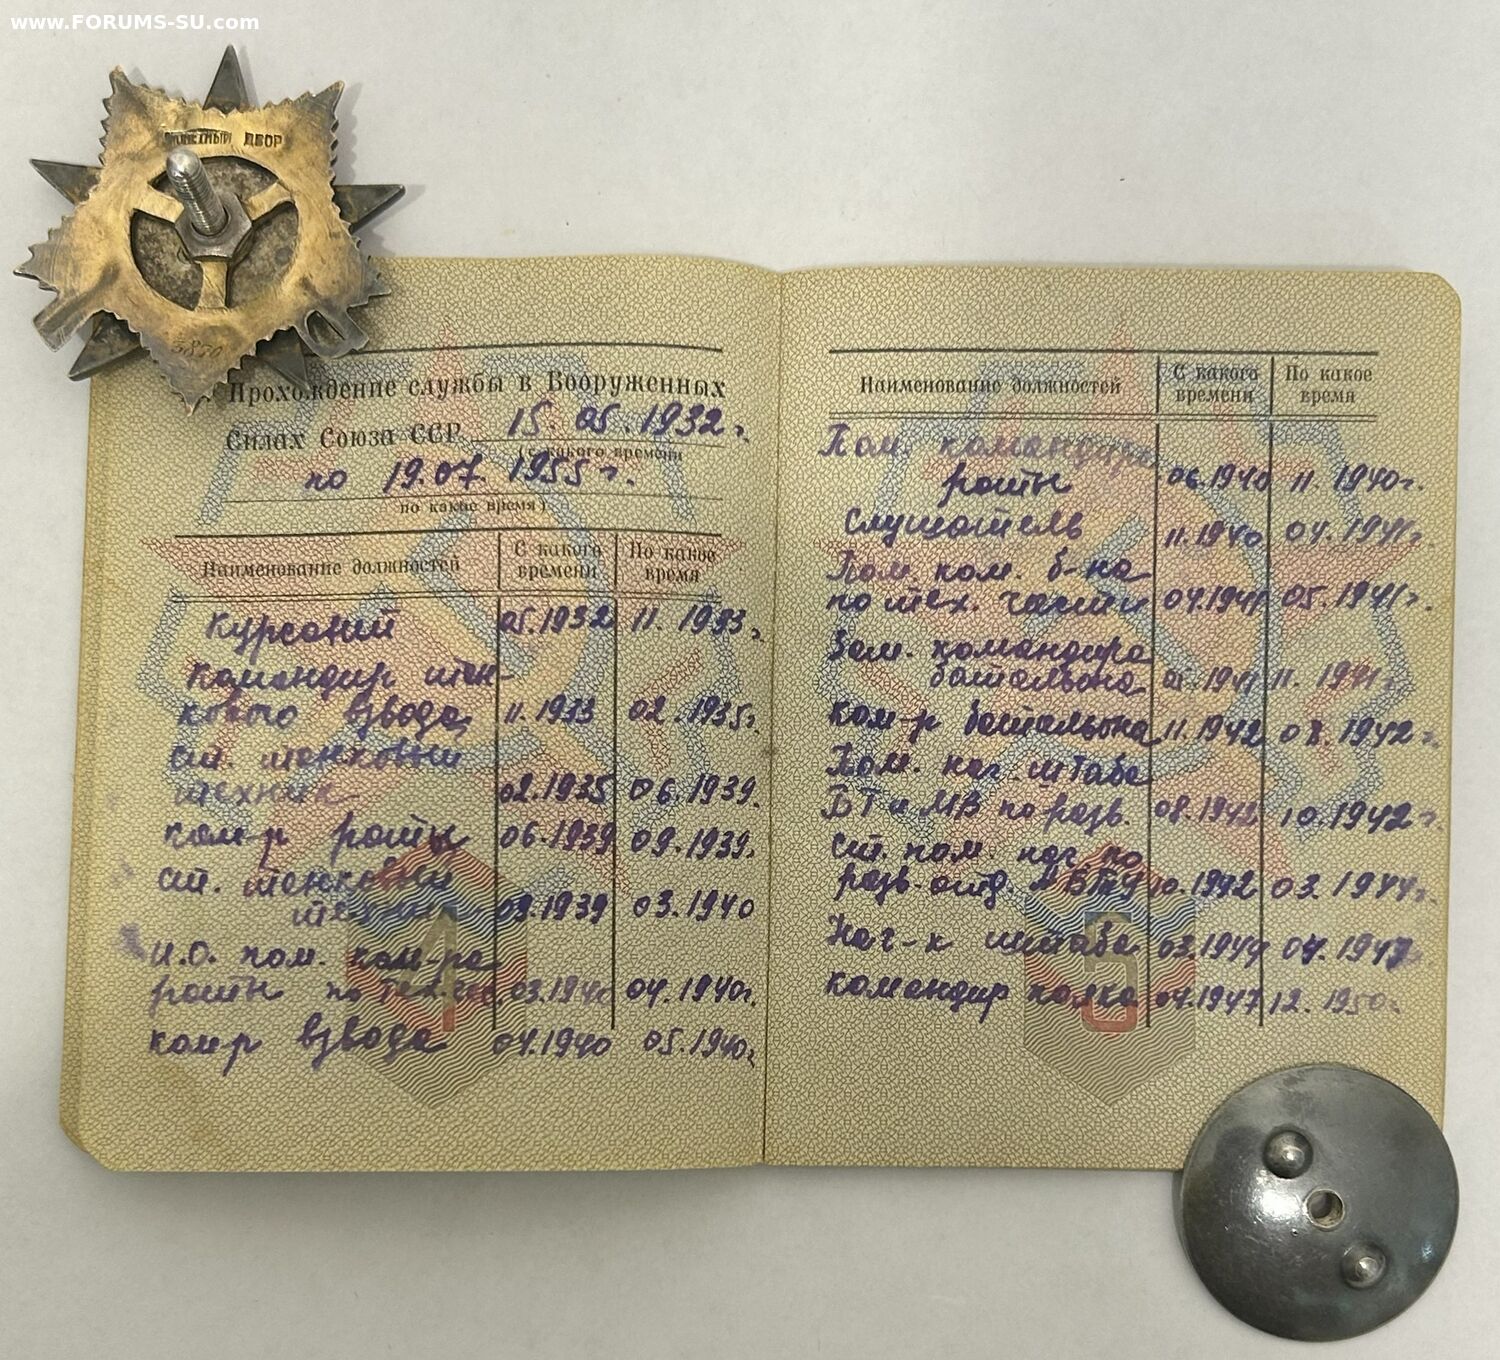 www.FORUMS-SU.com
МОНЕТНЫЙ ДВОР
Прохождение службы в Вооруженных
Силах Союза ССР 15.05.1932г.
(с какого времени
по 19.07.1955г.
по какое время)
Наименование должностей С какого времени По какое время
Курсант 05.1932 11.1933г.
Командир тан-
кового взвода 11.1933 02.1935г.
ст. танковый
техник 02.1935 06.1939.
ком-р роты 06.1939 09.1939.
ст. танковый
техник 09.1939 03.1940
И.О. пом. ком-ра
роты по тех. 03.1940 04.1940г.
ком-р взвода 04.1940 05.1940г
4
Наименование должностей С какого времени По какое время
Пом. командира
роты 06.1940 11.1940г.
Слушатель 11.1940 04.1941г.
Пом. ком. б-на
по тех. части 04.1941 05.1941г.
Зам. командира
батальона 05.1941 11.1941г.
ком-р батальона 11.1942 08.1942г.
Пом. нач. штаба
БТ и МВ по разв. 08.1942 10.1942г.
ст. пом. нач по
разв. отд. 10.1942 03.1944г.
Нач-к штаба 03.1944 04.1947
командир полка 04.1947 12.1950г.
5